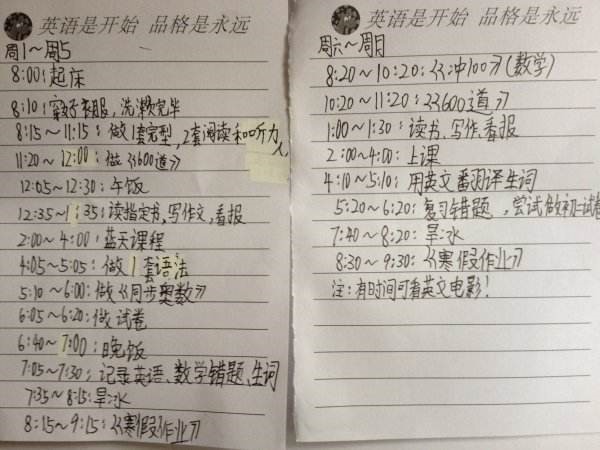 英语是开始 品格是永远
周1～周5
8:00:起床
8:10:穿好衣服，洗漱完毕
8:15～11:15:做1套完型，2套阅读和听力
11:20～12:00:做《600道》
12:05～12:30:午饭
12:35～1:35:读指定书，写作文，看报
2:00～4:00:蓝天课程
4:05～5:05:做1套语法
5:10～6:00:做《同步奥数》
6:05～6:20:做试卷
6:40～7:00:晚饭
7:05～7:30:记录英语、数学错题、生词
7:35～8:15:旱冰
8:15～9:15:《寒假作业》
英语是开始 品格是永远
周六～周日
8:20～10:20:《冲100》(数学)
10:20～11:20:《600道》
1:00～1:30:读书、写作、看报
2:00～4:00:上课
4:10～5:10:用英文翻译生词
5:20～6:20:复习错题，尝试做初一试卷
7:40～8:20:旱冰
8:30～9:30:《寒假作业》
注:有时间可看英文电影!